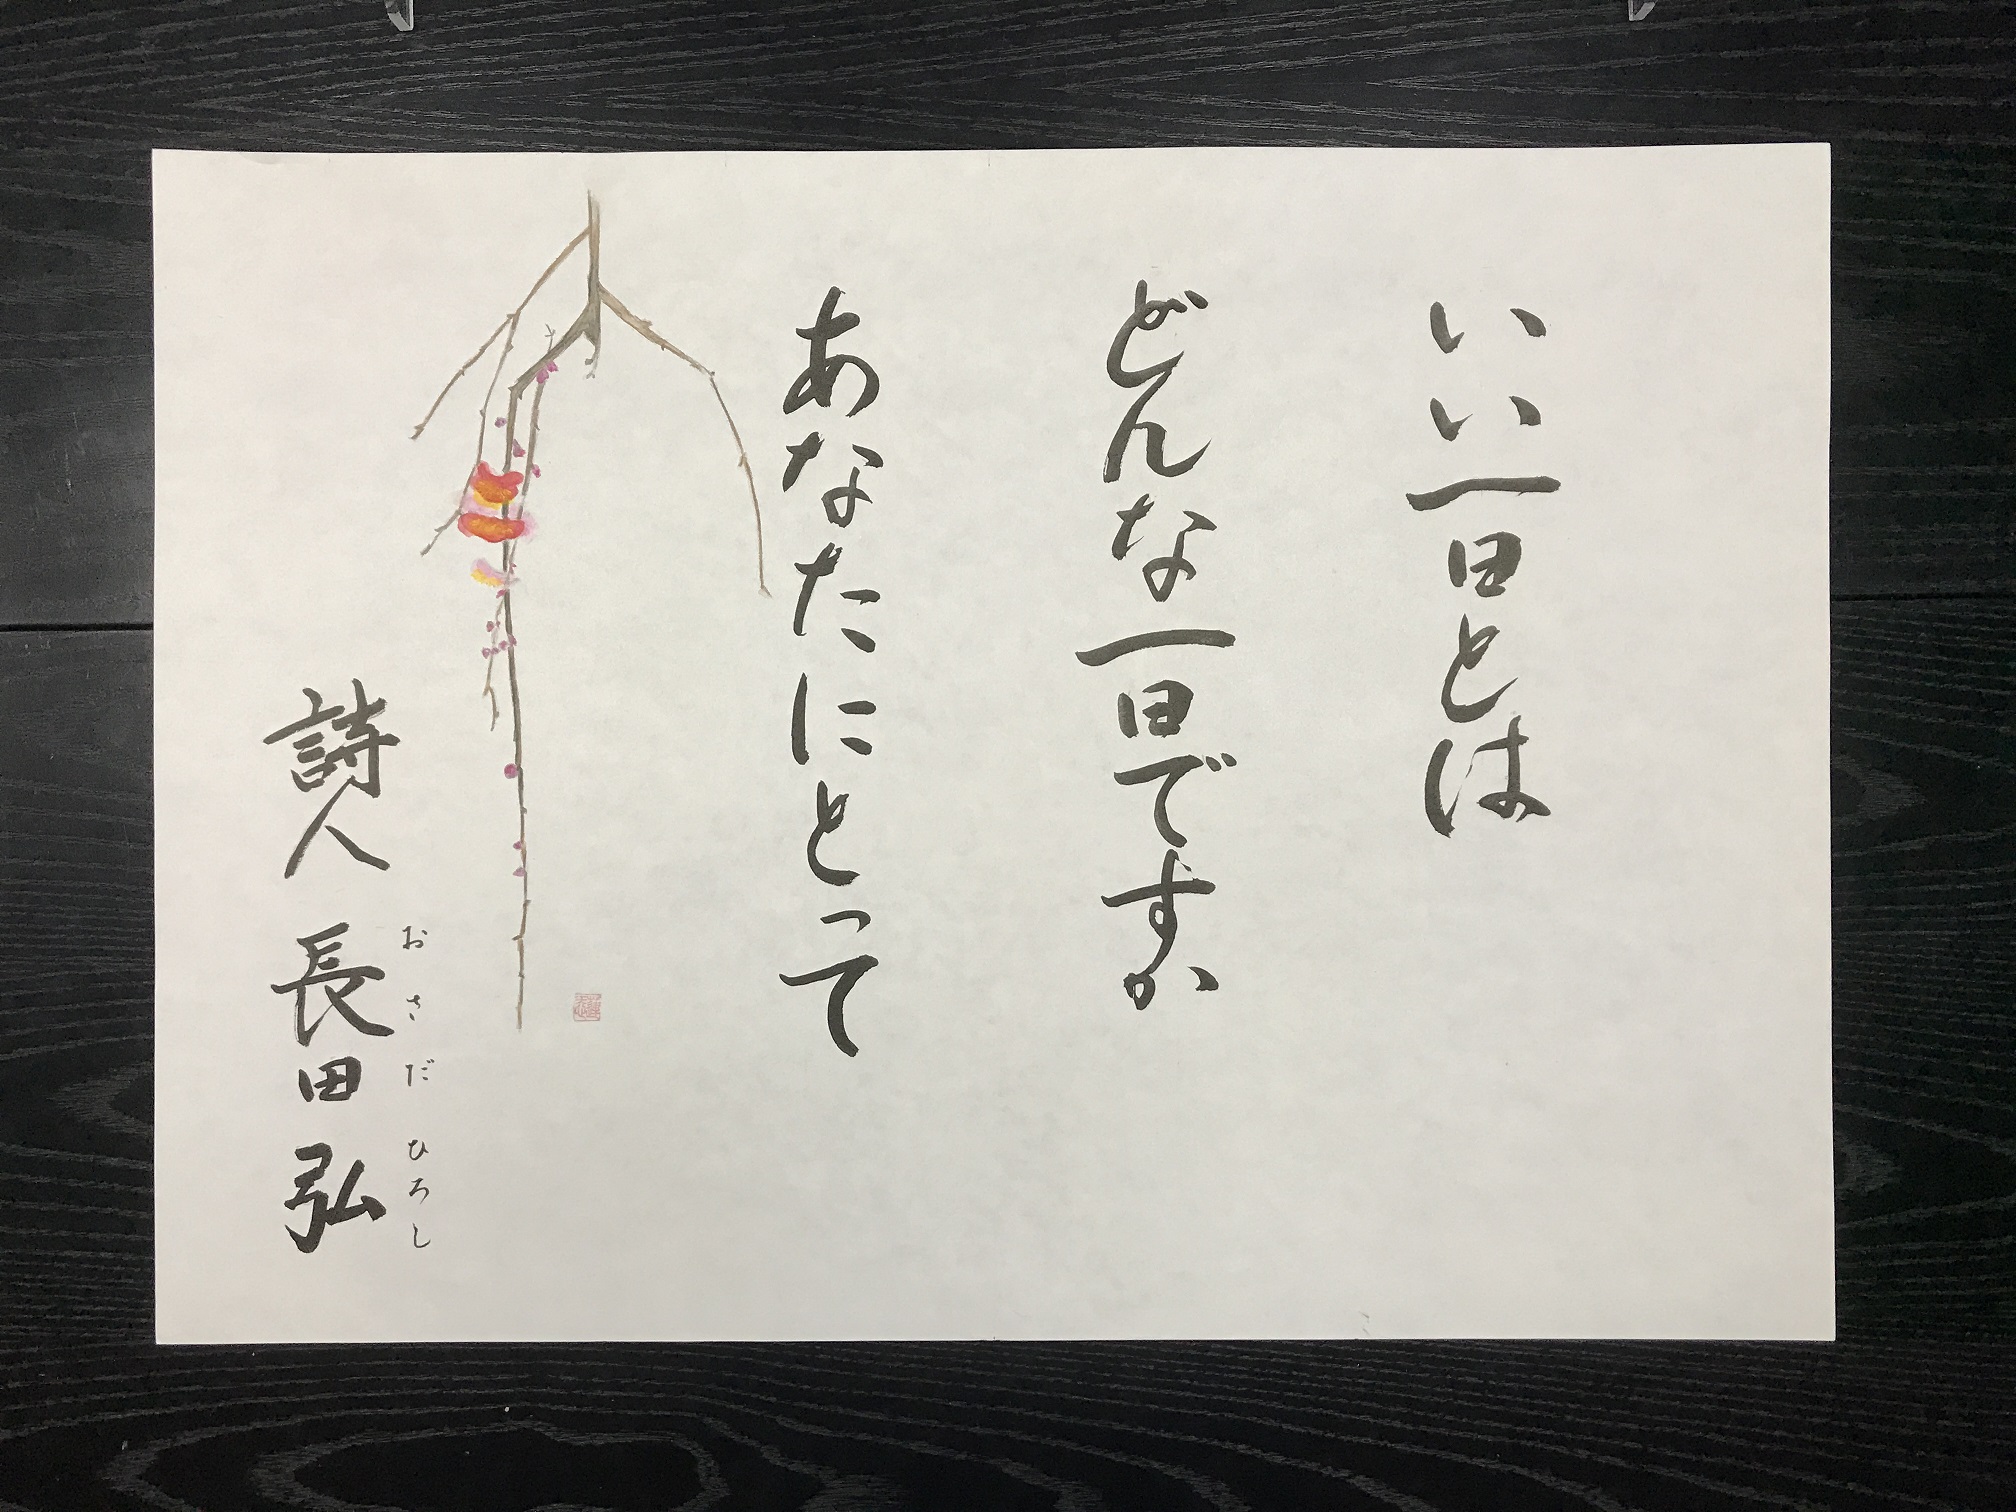 いい一日とは
どんな一日ですか
あなたにとって
詩人 長田 弘
おさだ ひろし